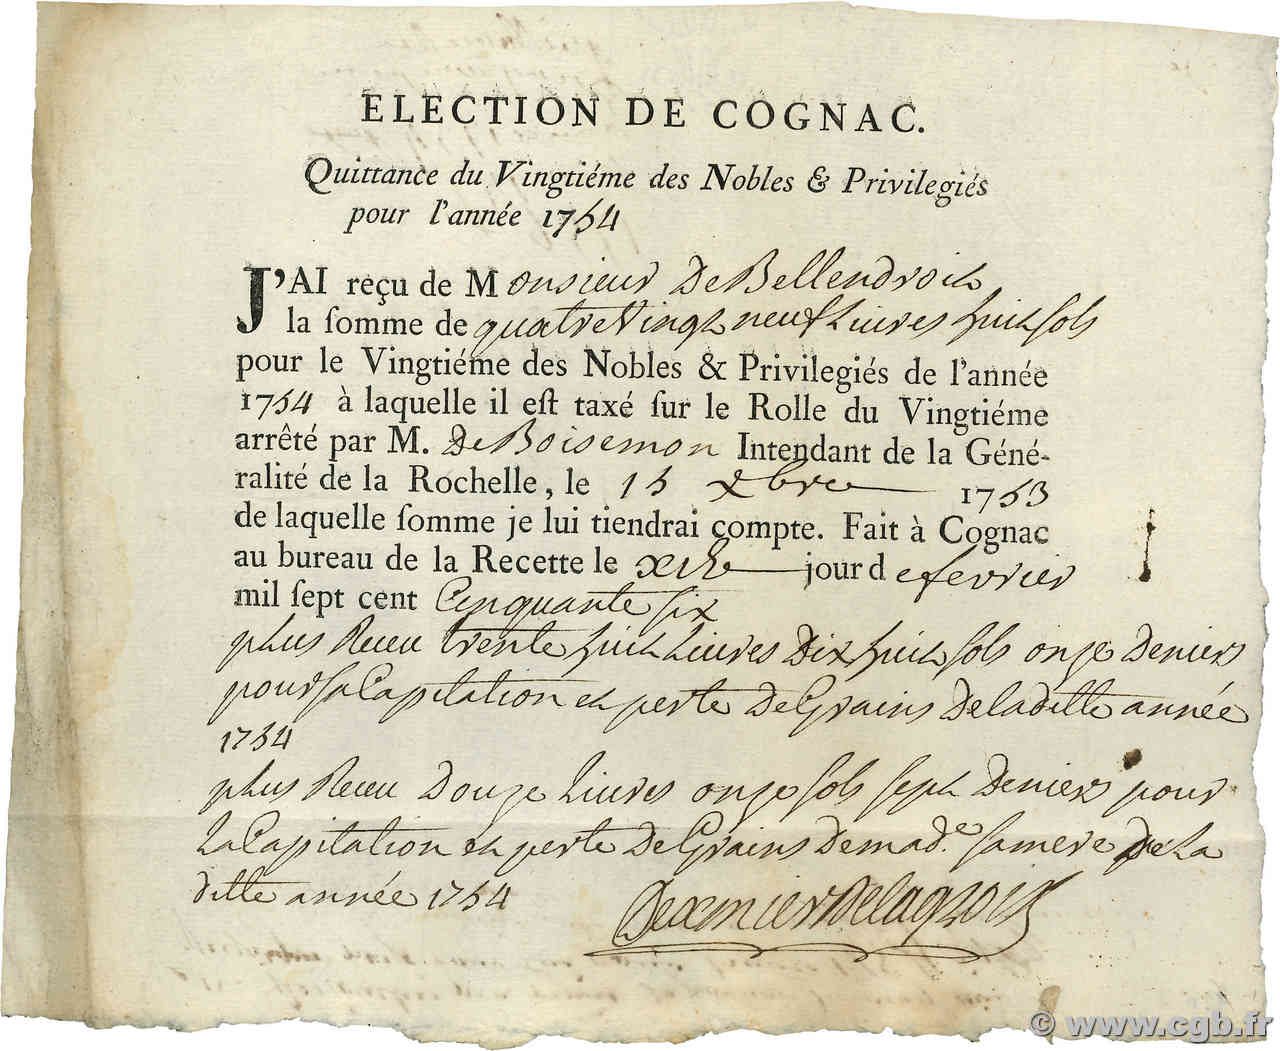 ELECTION DE COGNAC.
Quittance du Vingtiéme des Nobles & Privilegiés
pour l'année 1754
J'AI reçu de Monsieur De Bellendroit
la somme de quatre Vingt neuf Livres huit sols
pour le Vingtiéme des Nobles & Privilegiés de l'année
1754 à laquelle il est taxé sur le Rolle du Vingtiéme
arrêté par M. De Boisemon Intendant de la Géné-
ralité de la Rochelle, le 15 xbre 1753
de laquelle somme je lui tiendrai compte. Fait à Cognac
au bureau de la Recette le jour de fevrier
mil sept cent Cinquante six
plus Receu trente huit Livres Dix huit sols onze Deniers
pour sa Capitation et perte De Grains De la ditte année
1754
plus Receu Douze Livres onze sols sept Deniers pour
La Capitation et perte De Grains De mad.e sa mere De La
ditte année 1754
Dexmier Delagroix
© www.cgb.fr